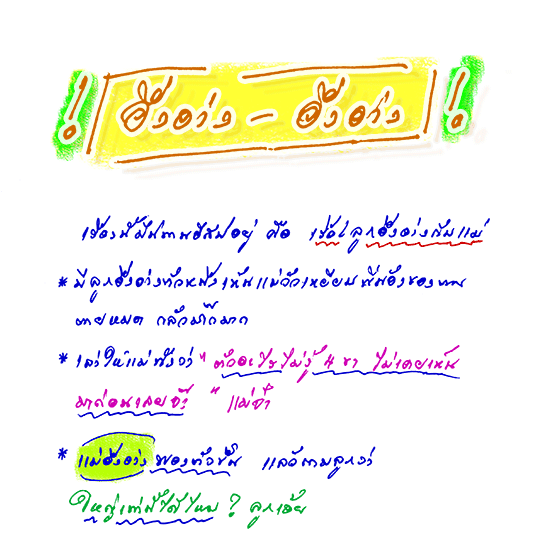 ! อึ่งอ่าง - อึ่งอ่าง !
เรื่องนี้มีนิทานอีสปอยู่ คือ เรื่อง ลูกอึ่งอ่างกับแม่
* มีลูกอึ่งอ่างตัวหนึ่งเห็นแม่วัวเหยียบพี่น้องของตน
ตายหมด กลัวมาก
* เล่าให้แม่ฟังว่า " ตัวอะไรไม่รู้ 4 ขา ไม่เคยเห็น
มาก่อนเลยจ้า " แม่จ๋า
* แม่อึ่งอ่าง พองตัวขึ้น แล้วถามลูกว่า
ใหญ่เท่านี้ได้ไหม ? ลูกเอ๋ย